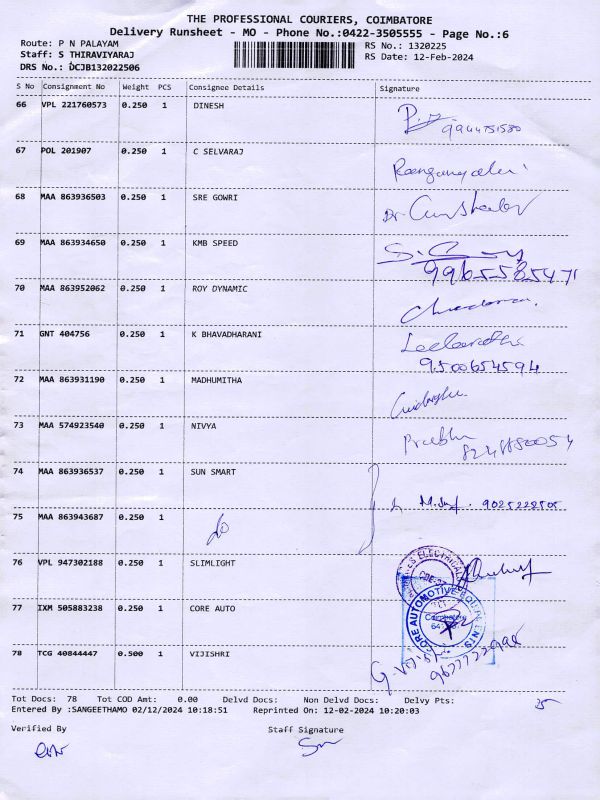 THE PROFESSIONAL COURIERS, COIMBATORE
Delivery Runsheet - MO - Phone No.:0422-3505555 - Page No.:6
Route: P N PALAYAM
RS No.: 1320225
Staff: S THIRAVIYARAJ
RS Date: 12-Feb-2024
DRS No.: DCJB132022506
S No Consignment No Weight PCS Consignee Details Signature
66 VPL 221760573 0.250 1 DINESH
9944751580
67 POL 201907 0.250 1 C SELVARAJ
68 MAA 863936503 0.250 1 SRE GOWRI
Dr.
69 MAA 863934650 0.250 1 KMB SPEED
9965585471
70 MAA 863952062 0.250 1 ROY DYNAMIC
71 GNT 404756 0.250 1 K BHAVADHARANI
9500654594
72 MAA 863931190 0.250 1 MADHUMITHA
73 MAA 574923540 0.250 1 NIVYA
Prabhu
74 MAA 863936537 0.250 1 SUN SMART
75 MAA 863943687 0.250 1
do
76 VPL 947302188 0.250 1 SLIMLIGHT
77 IXM 505883238 0.250 1 CORE AUTO
CORE AUTOMOTIVE EQUIPMENTS
Coimbatore
78 TCG 40844447 0.500 1 VIJISHRI
Tot Docs: 78 Tot COD Amt: 0.00 Delvd Docs: Non Delvd Docs: Delvy Pts: 25
Entered By :SANGEETHAMO 02/12/2024 10:18:51 Reprinted On: 12-02-2024 10:20:03
Verified By
Staff Signature